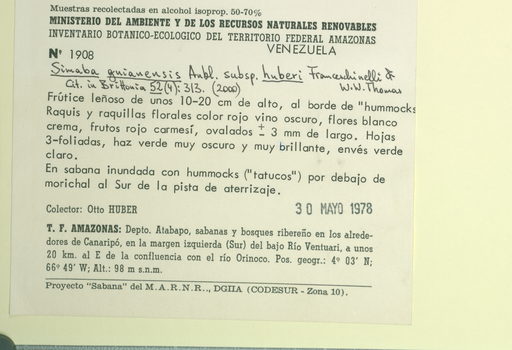 Muestras recolectadas en alcohol isoprop. 50-70%
MINISTERIO DEL AMBIENTE Y DE LOS RECURSOS NATURALES RENOVABLES
INVENTARIO BOTANICO-ECOLOGICO DEL TERRITORIO FEDERAL AMAZONAS
VENEZUELA
Nº 1908
Simaba guianensis Aubl. subsp. huberi Franceschinelli &
W.W. Thomas
Cit. in Brittonia 52(4): 313. (2000)
Frútice leñoso de unos 10-20 cm de alto, al borde de "hummocks
Raquis y raquillas florales color rojo vino oscuro, flores blanco
crema, frutos rojo carmesí, ovalados ± 3 mm de largo. Hojas
3-foliadas, haz verde muy oscuro y muy brillante, envés verde
claro.
En sabana inundada con hummocks ("tatucos") por debajo de
morichal al Sur de la pista de aterrizaje.
Colector: Otto HUBER
30 MAYO 1978
T. F. AMAZONAS: Depto. Atabapo, sabanas y bosques ribereño en los alrede-
dores de Canaripó, en la margen izquierda (Sur) del bajo Río Ventuari, a unos
20 km. al E de la confluencia con el río Orinoco. Pos. geogr.: 4º 03' N;
66º 49' W; Alt.: 98 m s.n.m.
Proyecto "Sabana" del M.A.R.N.R.., DGIIA (CODESUR - Zona 10).